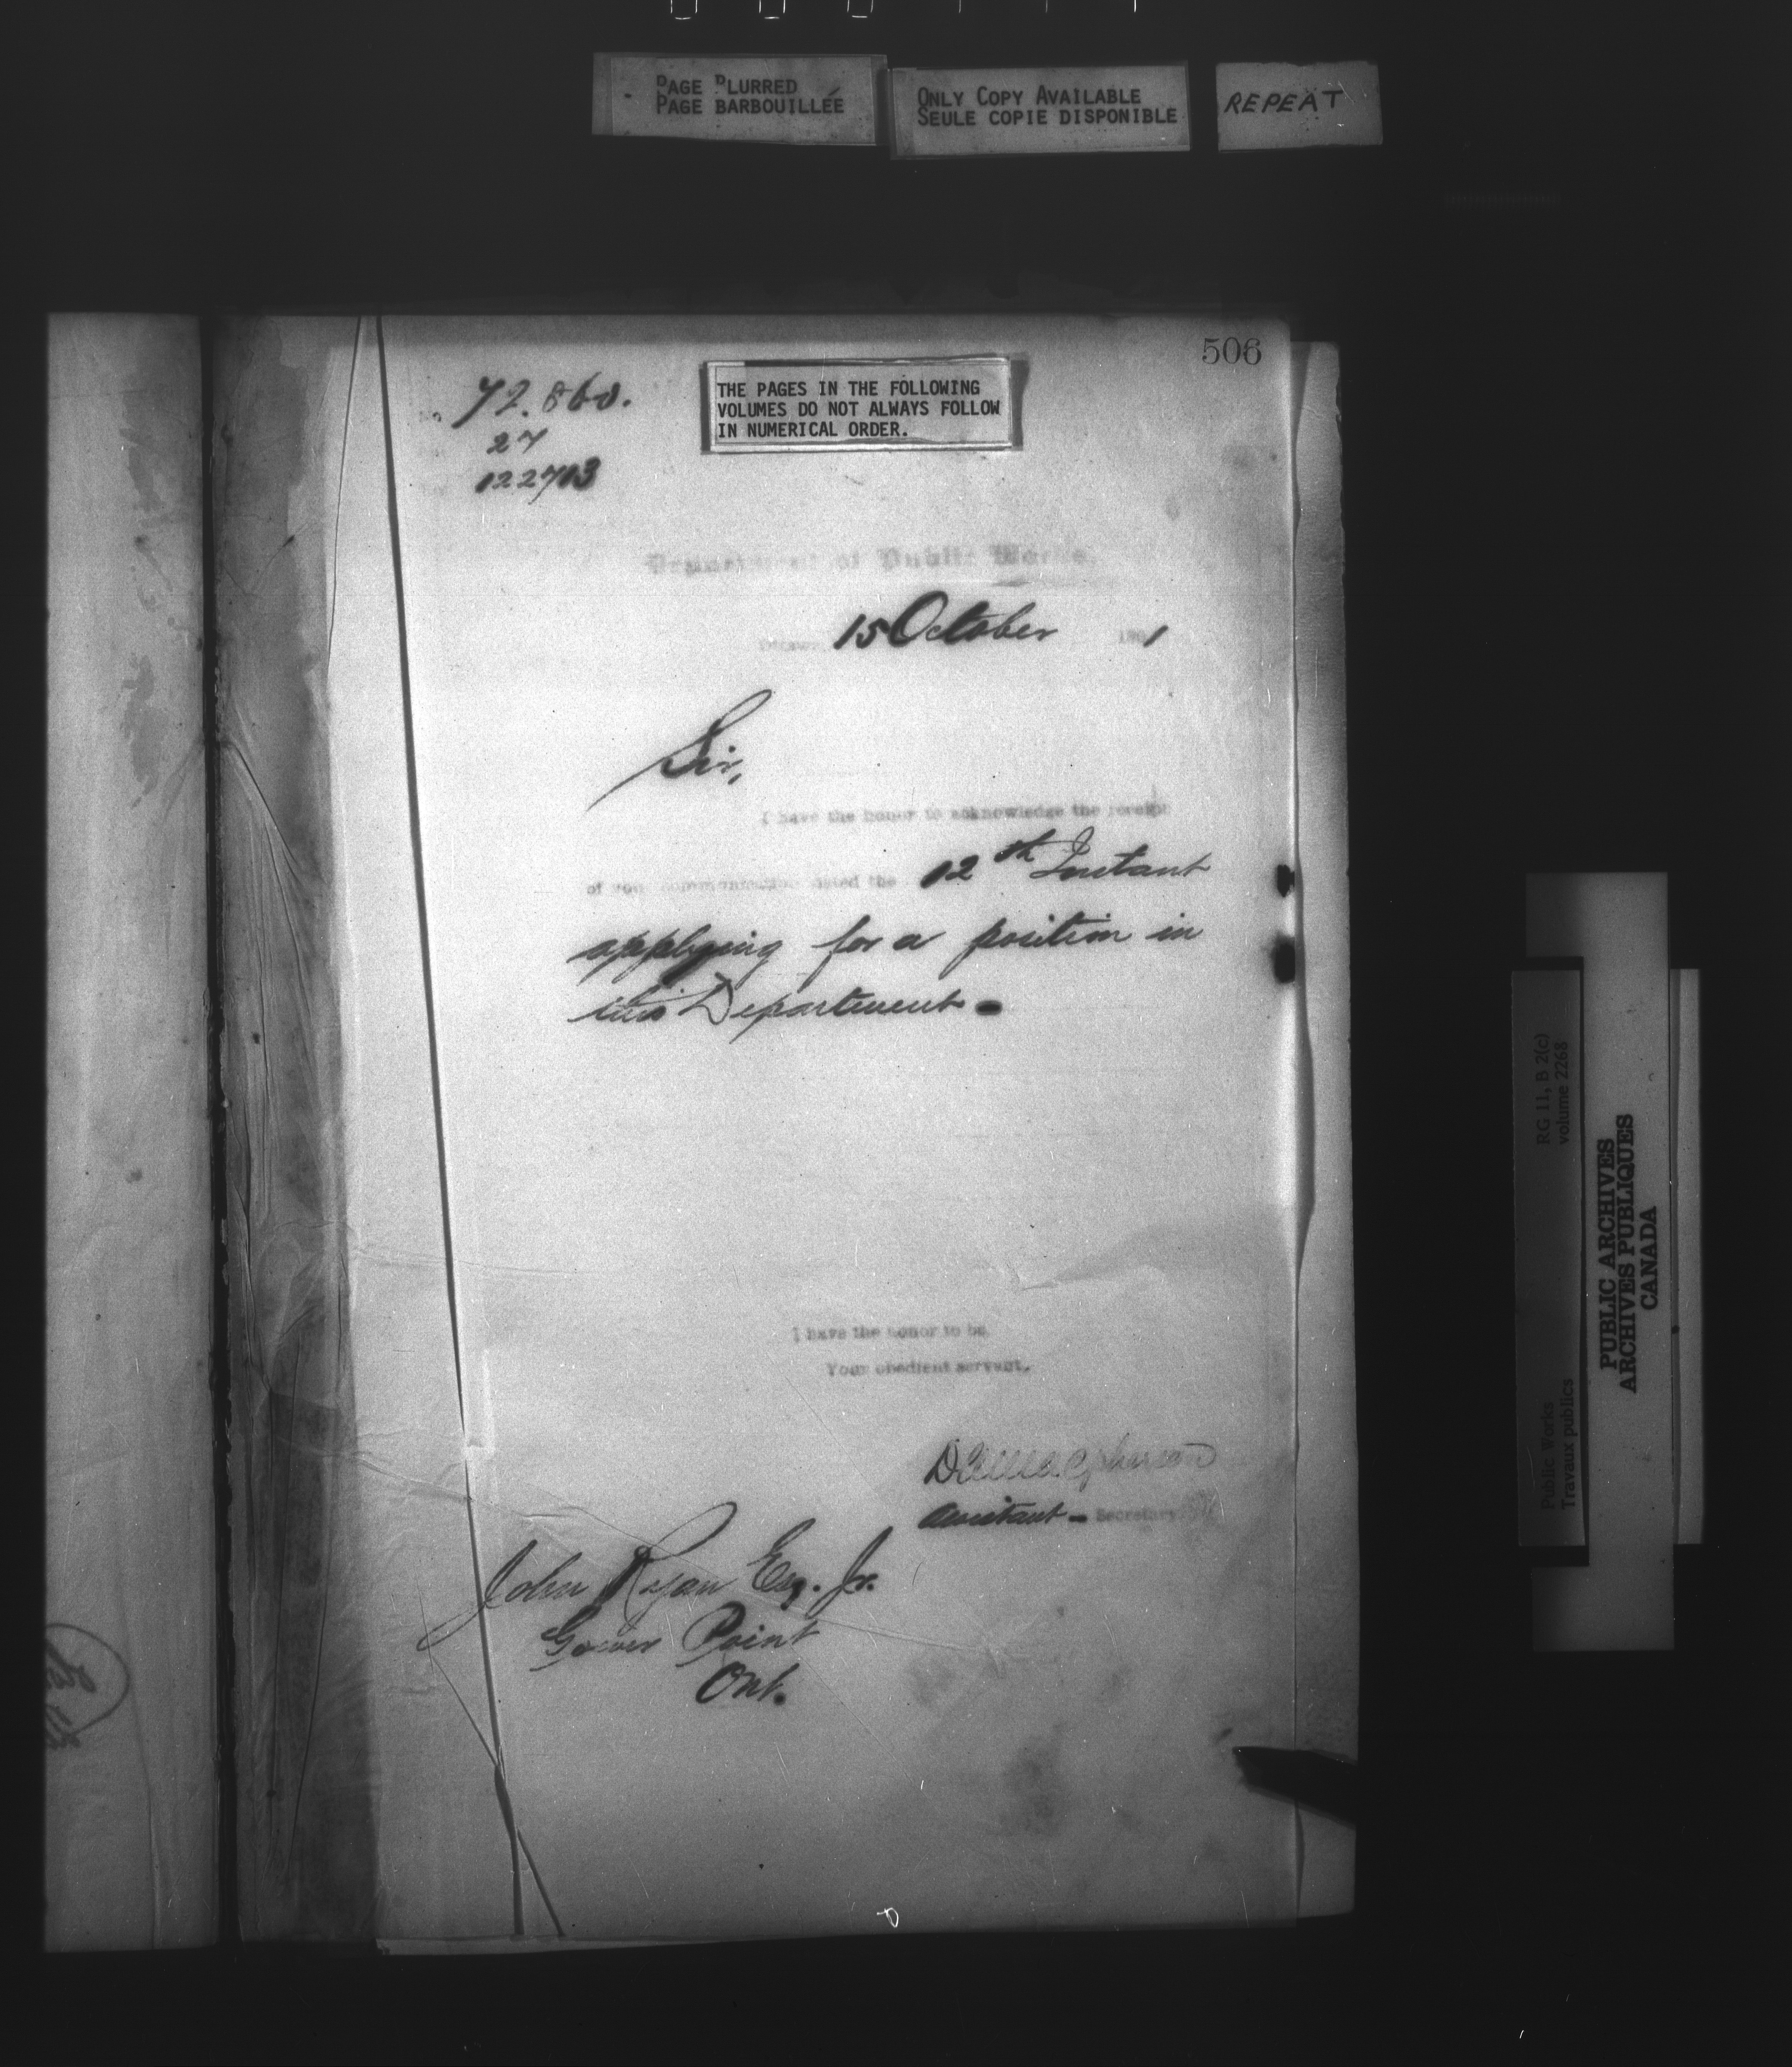 PAGE BLURRED
PAGE BARBOUILLÉE
ONLY COPY AVAILABLE
SEULE COPIE DISPONIBLE
REPEAT
506
THE PAGES IN THE FOLLOWING
VOLUMES DO NOT ALWAYS FOLLOW
IN NUMERICAL ORDER.
No. 72.860.
27
122713
Department of Public Works,
Ottawa, 15 October 1901
Sir,
I have the honor to acknowledge the receipt
of your communication dated the 12th Instant
applying for a position in
this Department.
I have the honor to be,
Your obedient servant,
Assistant - Secretary
John Ryan Esq. Jr.
Gower Point
Ont.
RG 11, B 2(c)
volume 2268
Public Works
Travaux publics
PUBLIC ARCHIVES
ARCHIVES PUBLIQUES
CANADA